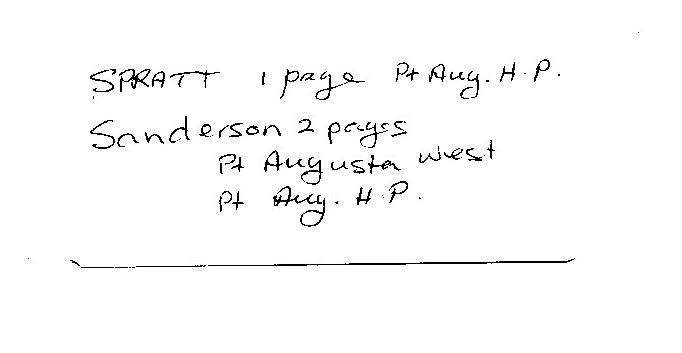 SPRATT 1 page Pt Aug. H.P.
Sanderson 2 pages
Pt Augusta West
Pt Aug. H.P.